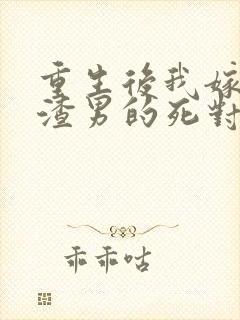 重生後我嫁
渣男的死對
乖乖咕